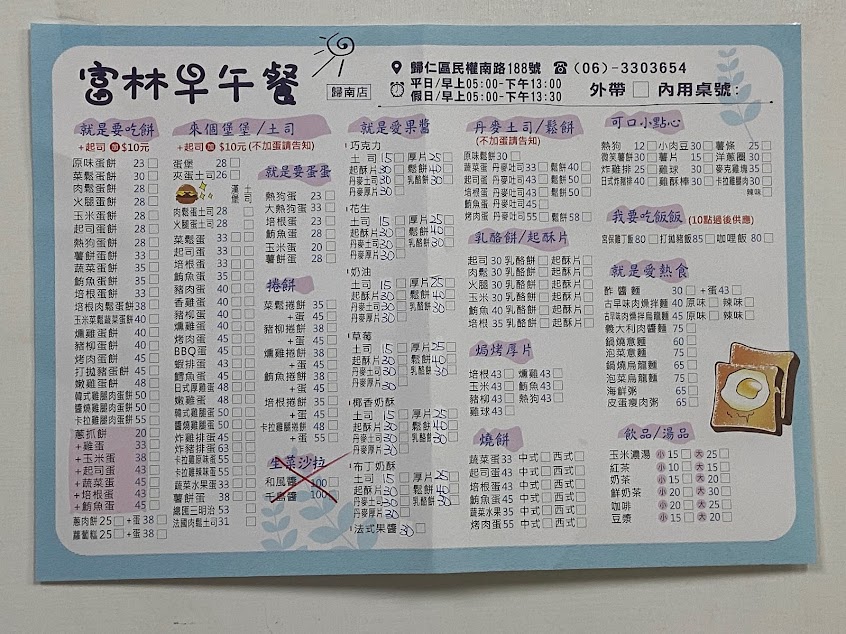 富林早午餐
歸南店
歸仁區民權南路188號 ☎(06)-3303654
平日/早上05:00-下午13:00
假日/早上05:00-下午13:30
外帶□ 內用桌號:
就是要吃餅
+起司 加 $10元
原味蛋餅 23□
菜鬆蛋餅 30□
肉鬆蛋餅 28□
火腿蛋餅 28□
玉米蛋餅 28□
起司蛋餅 28□
熱狗蛋餅 28□
薯餅蛋餅 33□
蔬菜蛋餅 35□
鮪魚蛋餅 35□
培根蛋餅 33□
培根肉鬆蛋餅38□
玉米菜鬆蔬菜蛋餅40□
燻雞蛋餅 40□
豬柳蛋餅 40□
烤肉蛋餅 45□
打拋豬蛋餅 45□
嫩雞蛋餅 48□
韓式雞腿肉蛋餅50□
醬燒雞腿肉蛋餅50□
卡拉雞腿肉蛋餅55□
蔥抓餅 20□
+雞蛋 33□
+玉米蛋 38□
+起司蛋 43□
+蔬菜蛋 45□
+培根蛋 43□
+鮪魚蛋 45□
蔥肉餅25□+蛋38□
蘿蔔糕25□+蛋38□
來個堡堡/土司
+起司 加 $10元(不加蛋請告知)
蛋堡 28□
夾蛋土司26□
漢堡 土司
肉鬆蛋土司 28 □
火腿蛋土司 28 □
菜鬆蛋 33□□
起司蛋 33□□
培根蛋 33□□
鮪魚蛋 35□□
豬肉蛋 35□□
香雞蛋 40□□
豬柳蛋 40□□
燻雞蛋 40□□
烤肉蛋 45□□
BBQ蛋 45□□
蝦排蛋 43□□
鱈魚蛋 45□□
日式厚雞蛋 48□□
嫩雞蛋 48□□
韓式雞腿蛋 50□□
醬燒雞腿蛋 50□□
炸雞排蛋 45□□
炸豬排蛋 63□□
卡拉雞原味蛋55□□
卡拉雞辣味蛋55□□
蔬菜水果蛋 33□□
薯餅蛋 38□□
總匯三明治 53□
法國肉鬆土司31□
就是要蛋蛋
熱狗蛋 23□
大熱狗蛋 33□
培根蛋 23□
鮪魚蛋 28□
玉米蛋 20□
薯餅蛋 28□
捲餅
菜鬆捲餅 35□
+蛋 45□
豬柳捲餅 38□
+蛋 48□
燻雞捲餅 38□
+蛋 48□
鮪魚捲餅 38□
+蛋 48□
培根捲餅 35□
+蛋 45□
卡拉雞捲餅 48□
+蛋 55□
生菜沙拉
和風醬 100
千島醬 100
就是愛果醬
巧克力
土司15□厚片25□
起酥片30□鬆餅40□
丹麥土司30□乳酪餅30□
丹麥厚片30□
花生
土司15□厚片25□
起酥片30□鬆餅40□
丹麥土司30□乳酪餅30□
丹麥厚片30□
奶油
土司15□厚片25□
起酥片30□鬆餅40□
丹麥土司30□乳酪餅30□
丹麥厚片30□
草莓
土司15□厚片25□
起酥片30□鬆餅40□
丹麥土司30□乳酪餅30□
丹麥厚片30□
椰香奶酥
土司15□厚片25□
起酥片30□鬆餅40□
丹麥土司30□乳酪餅30□
丹麥厚片30□
布丁奶酥
土司15□厚片25□
起酥片30□鬆餅40□
丹麥土司30□乳酪餅30□
丹麥厚片30□
法式果醬30□
丹麥土司/鬆餅
(不加蛋請告知)
原味鬆餅30□
蔬菜蛋 丹麥吐司33□鬆餅40□
起司蛋 丹麥吐司43□鬆餅50□
培根蛋 丹麥吐司43□鬆餅50□
鮪魚蛋 丹麥吐司45□
烤肉蛋 丹麥吐司55□鬆餅58□
乳酪餅/起酥片
起司30乳酪餅□起酥片□
肉鬆30乳酪餅□起酥片□
火腿30乳酪餅□起酥片□
玉米30乳酪餅□起酥片□
鮪魚40乳酪餅□起酥片□
培根35乳酪餅□起酥片□
焗烤厚片
培根43□燻雞43□
玉米43□鮪魚43□
豬柳43□熱狗43□
雞球43□
燒餅
蔬菜蛋33中式□西式□
起司蛋43中式□西式□
培根蛋43中式□西式□
鮪魚蛋45中式□西式□
蔬菜水果35中式□西式□
烤肉蛋55中式□西式□
可口小點心
熱狗 12□小肉豆30□薯條 25□
微笑薯餅30□薯片 15□洋蔥圈30□
炸雞排25□雞球 30□麥克雞塊35□
日式炸豬排40□雞酥棒30□卡拉雞腿肉30□
辣味□
我要吃飯飯(10點過後供應)
宮保雞丁飯80□打拋豬飯85□咖哩飯80□
就是愛熱食
酢醬麵 30□+蛋43□
古早味肉燥拌麵40原味□辣味□
古早味肉燥拌烏龍麵45原味□辣味□
義大利肉醬麵75□
鍋燒意麵 60□
泡菜意麵 75□
鍋燒烏龍麵 65□
泡菜烏龍麵 75□
海鮮粥 65□
皮蛋瘦肉粥 65□
飲品/湯品
玉米濃湯 小15□大25□
紅茶 小10□大15□
奶茶 小15□大20□
鮮奶茶 小20□大30□
咖啡 小20□大25□
豆漿 小15□大20□